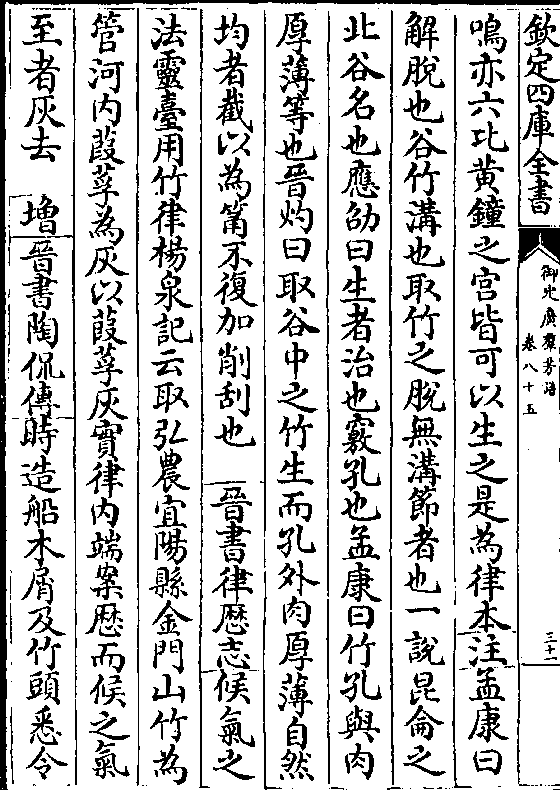 欽定四庫全書
御定廣羣芳譜
卷八十五
三十一
鳴亦六比黄鐘之宫皆可以生之是為律本注孟康曰
解脫也谷竹溝也取竹之脫無溝節者也一說昆侖之
北谷名也應劭曰生者治也竅孔也孟康曰竹孔與肉
厚薄等也晉灼曰取谷中之竹生而孔外肉厚薄自然
均者截以為筩不復加削刮也　晉書律歷志候氣之
法靈臺用竹律楊泉記云取弘農宜陽縣金門山竹為
管河内葭莩為灰以葭莩灰實律内端案歷而候之氣
至者灰去　增晉書陶侃傳時造船木屑及竹頭悉令